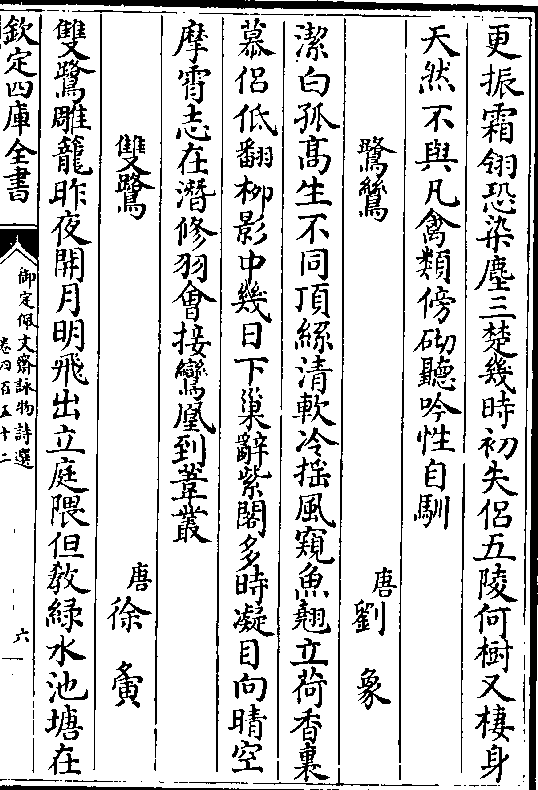 更振霜翎恐染塵三楚幾時初失侶五陵何樹又棲身
天然不與凡禽類傍砌聽吟性自馴
鷺鷥
唐劉象
潔白孤高生不同頂絲清軟冷搖風窺魚翹立荷香裏
慕侶低翻柳影中幾日下巢辭紫閣多時凝目向晴空
摩霄志在潛修羽會接鸞凰到葦叢
雙鷺
唐徐夤
雙鷺雕籠昨夜開月明飛出立庭隈但教緑水池塘在
欽定四庫全書
御定佩文齋詠物詩選
卷四百五十二
六